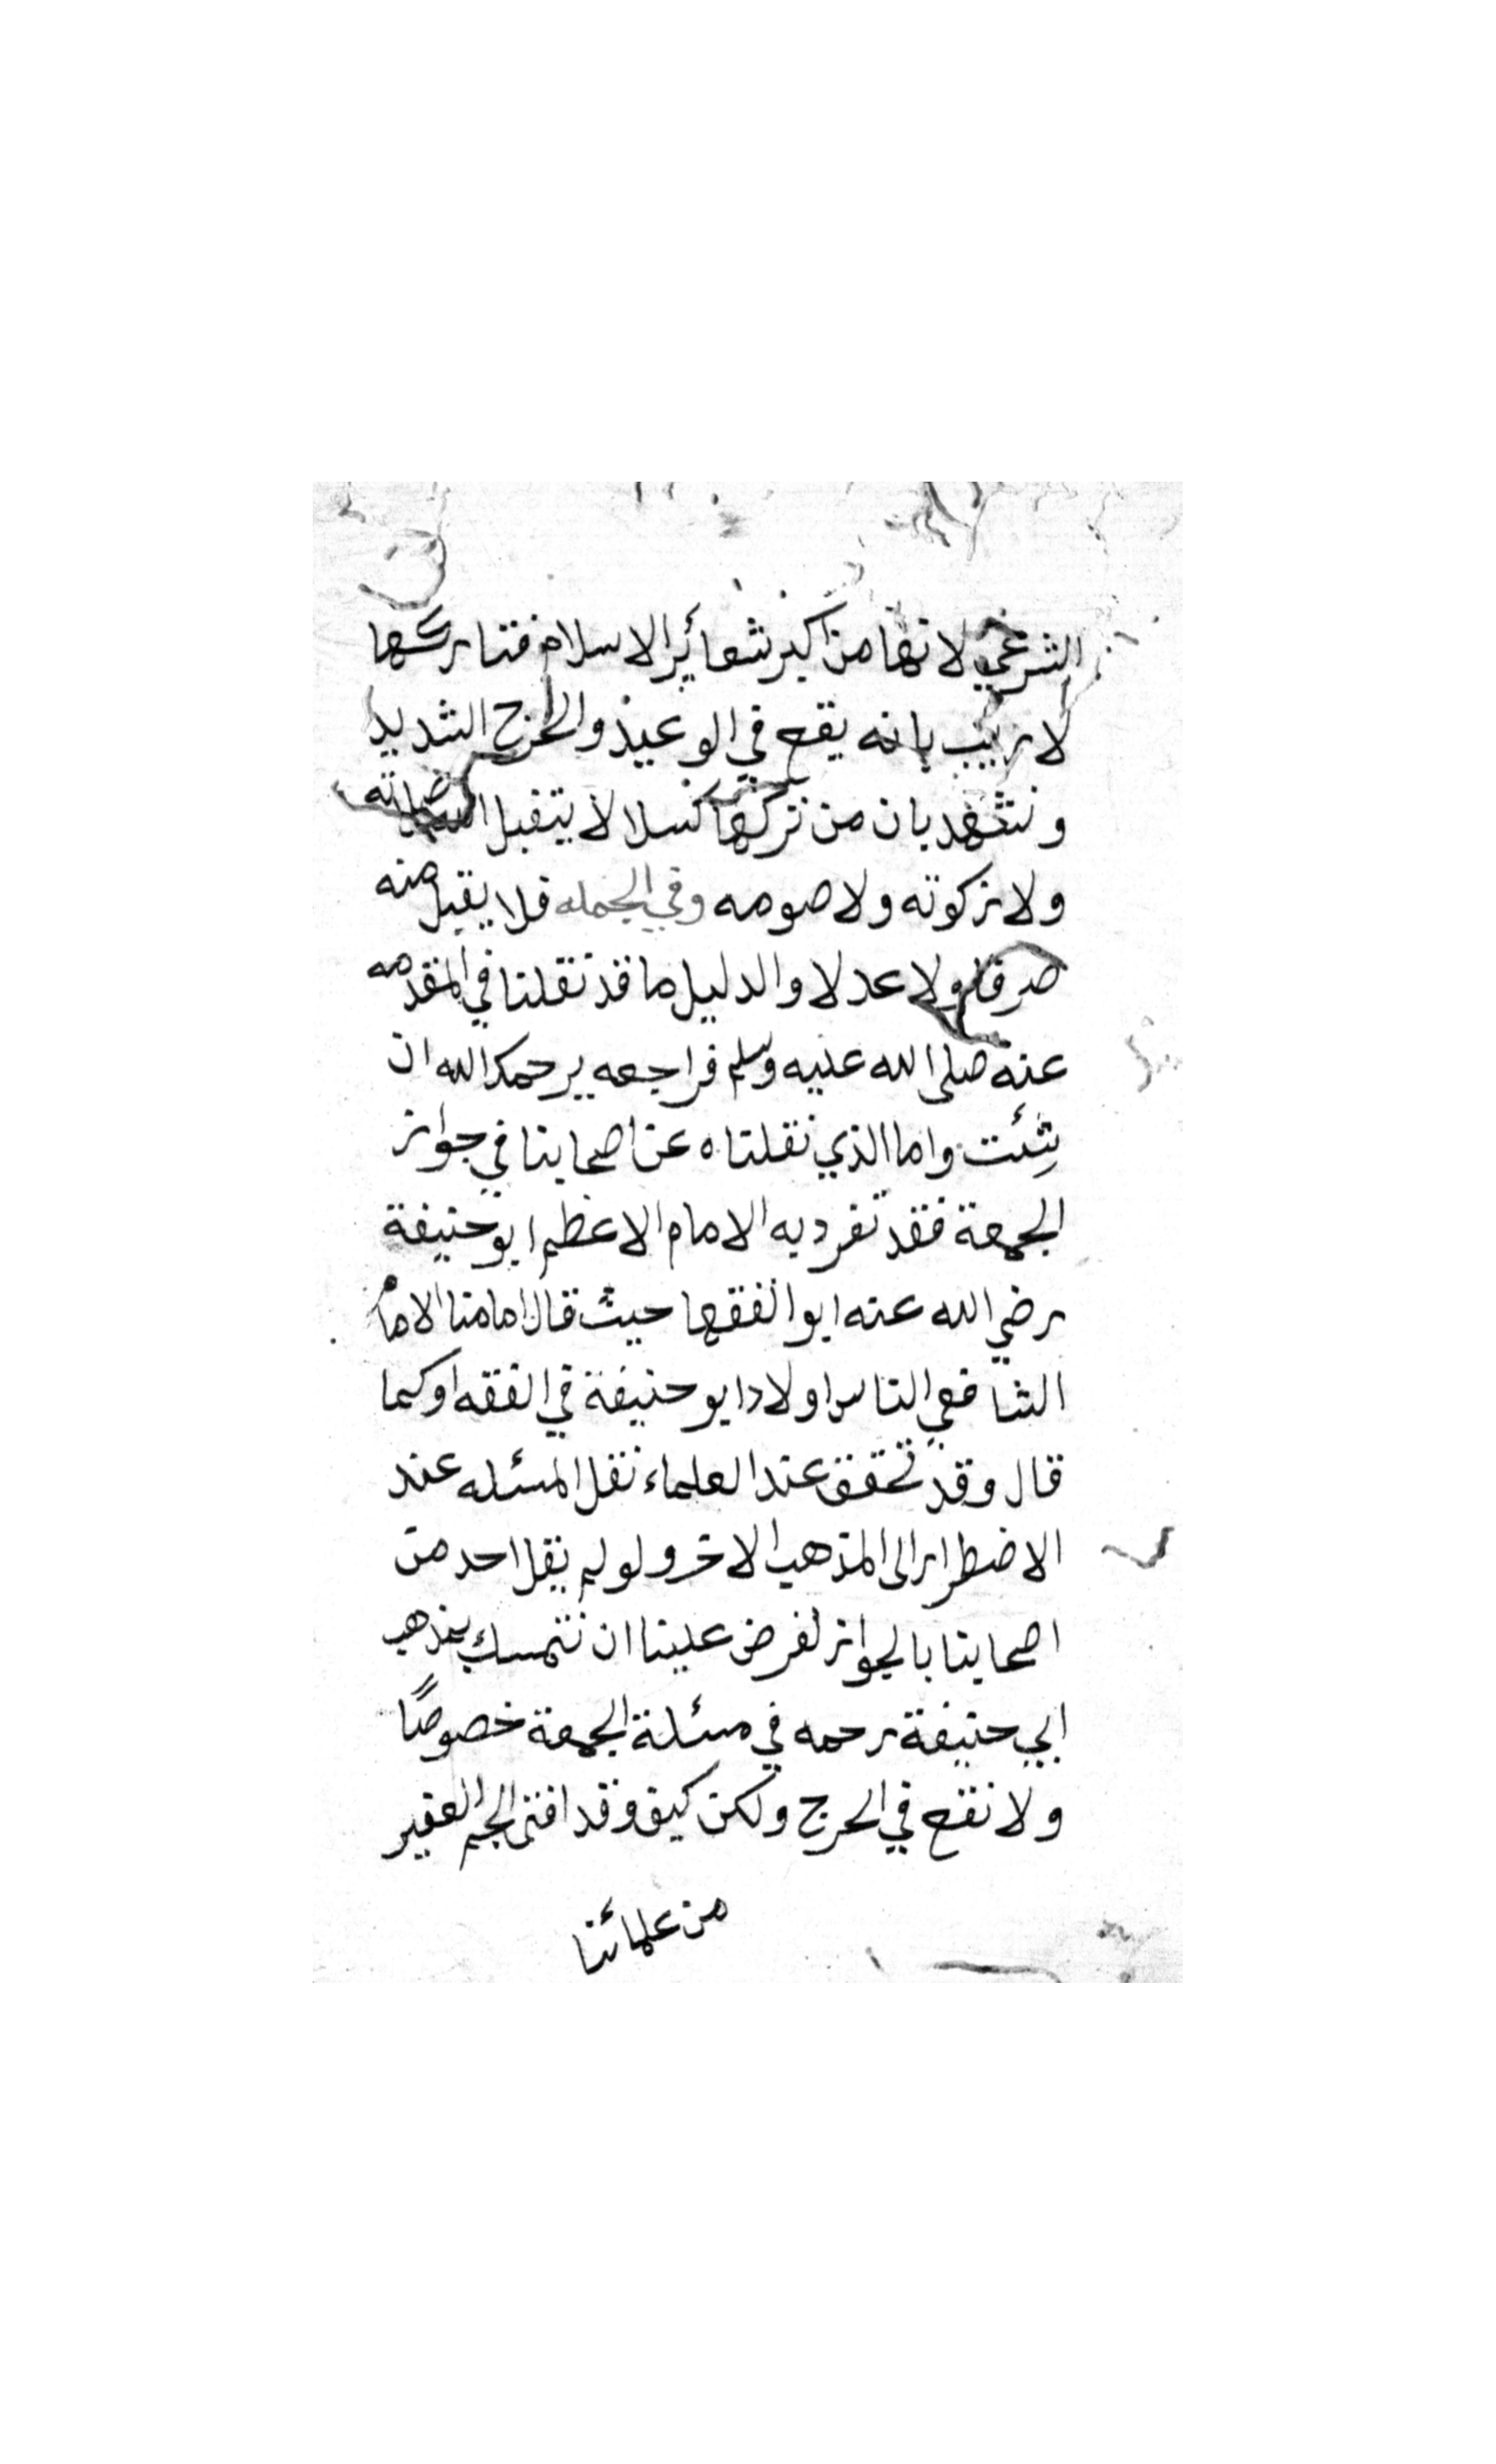 الشرعي لانها من اكبر شعائر الاسلام فتاركها
لا ريب بانه يقع في الوعيد والحرج الشديد
ونشهد بان من تركها كسلا لا يتقبل الله صلاته
ولا زكوته ولا صومه وفي الجمله فلا يقبل منه
صرفا ولا عدلا والدليل ما قد نقلنا في المقدمه
عنه صلى الله عليه وسلم فراجعه يرحمك الله ان
شِئت واما الذي نقلناه عن اصحابنا في جواز
الجمعة فقد تفرد به الامام الاعظم ابو حنيفة
رضي الله عنه ابو الفقها حيث قال امامنا الامام
الشافعي الناس اولاد ابو حنيفة في الفقه او كما
قال وقد تحقق عند العلماء نقل المسئله عند
الاضطرار الى المذهب الاخر ولو لم يقل احد من
اصحابنا بالجواز لفرض علينا ان نتمسك بمذهب
ابي حنيفة رحمه في مسئلة الجمعة خصوصًا
ولا نقع في الحرج ولكن كيف وقد افتى الجم الغفير
من علمائنا